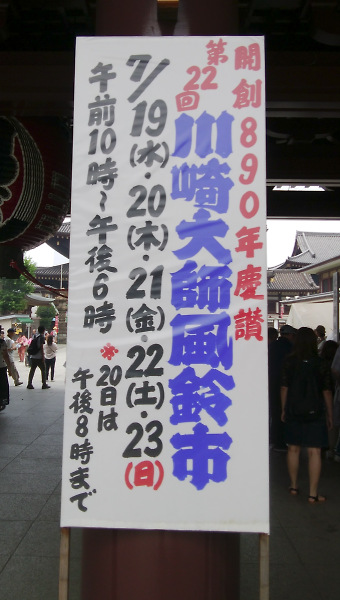 開創890年慶讃
第22回
川崎大師風鈴市
7/19(水)・20(木)・21(金)・22(土)・23(日)
午前10時～午後6時
※20日は
午後8時まで